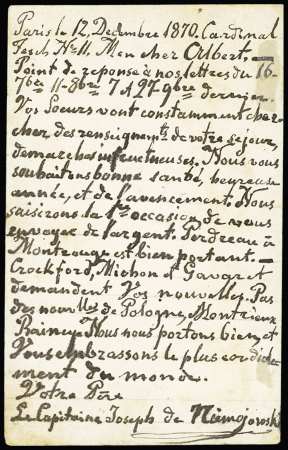 Paris le 12, Decembre 1870. Cardinal
Fesch No 11. Mon cher Albert. —
Point de reponse à nos lettres du 16-
7bre 11-8bre 7 et 27-9bre dernier.
Vos Soeurs vont constamment cher-
cher des renseignents de votre séjour,
demarches infructueuses. Nous vous
souhaitons bonne santé, heureuse
année, et de l'avancement. Nous
saisirons la 1re occasion de vous
envoyer de l'argent. Perdreau à
Montrouge est bien portant. —
Crockford, Michon et Gavaret
demandent Vos nouvelles. Pas
des nouvlles de Pologne, Montrieux
Rainey. Nous nous portons bien, et
Vous embrassons le plus cordiale-
ment du monde.
Votre Père
Le Capitaine Joseph de